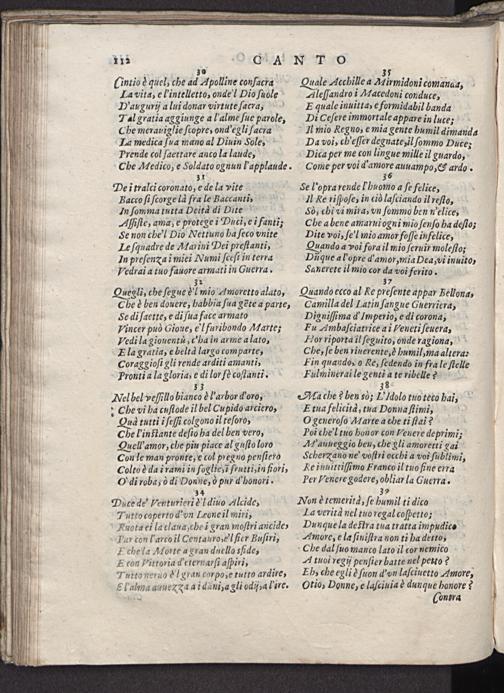 112
CANTO
30
Cintio è quel, che ad Apolline consacra
La vita, e l'intelletto, onde'l Dio suole
D'augurij a lui donar virtute sacra,
Tal gratia aggiunge a l'alme sue parole,
Che merauiglie scopre, ond'egli sacra
La medica sua mano al Diuin Sole,
Prende col saettare anco la laude,
Che Medico, e Soldato ognun l'applaude.
31
De i tralci coronato, e de la vite
Bacco si scorge là fra le Baccanti,
In somma tutta Deità di Dite
Assiste, ama, e protege i Duci, e i fanti;
Se non che'l Dio Nettuno ha seco vnite
Le squadre de Marini Dei prestanti,
In presenza i miei Numi scesi in terra
Vedrai a tuo fauore armati in Guerra.
32
Quegli, che segue è'l mio Amoretto alato,
Che è ben douere, habbia sua gēte a parte,
Se di saette, e di sua face armato
Vincer può Gioue, e'l furibondo Marte;
Vedi la giouentù, c'ha in arme a lato,
E la gratia, e beltà largo comparte,
Coraggiosi gli rende arditi amanti,
Pronti a la gloria, e di lor fè costanti.
33
Nel bel vessillo bianco è l'arbor d'oro,
Che vi ha custode il bel Cupido arciero,
Quà tutti i sessi colgono il tesoro,
Che l'instante desio ha del ben vero,
Quell'amor, che piu piace al gusto loro
Con le man pronte, e col pregno pensiero
Colto è da i rami in foglie, i frutti, in fiori,
O' di roba, ò di Donne, ò pur d'honori.
34
Duce de' Venturieri è'l diuo Alcide,
Tutto coperto d'vn Leone il miri,
Ruota ei la claua, che i gran mostri ancide,
Par con l'arco il Centauro, e'l fier Busiri,
E che la Morte a gran duello sfide,
E con Vittoria d'eternarsi aspiri,
Tutto neruo è'l gran corpo, e tutto ardire,
E l'alma auuezza a i dāni, a gli odij, a l'ire.
35
Quale Acchille a Mirmidoni comanda,
Alessandro i Macedoni conduce,
E quale inuitta, e formidabil banda
Di Cesere immortale appare in luce;
Il mio Regno, e mia gente humil dimanda
Da voi, ch'esser degnate, il sommo Duce;
Dica per me con lingue mille il guardo,
Come per voi d'amore auuampo, & ardo.
36
Se l'opra rende l'huomo a se felice,
Il Re rispose, in ciò lasciando il resto,
Sò, chi vi mira, vn sommo ben n'elice,
Che a bene amarui ogni mio senso ha desto;
Dite voi, se'l mio amor fosse infelice,
Quando a voi fora il mio seruir molesto;
Dūque a l'opre d'amor, mia Dea, vi inuito,
Sanerete il mio cor da voi ferito.
37
Quando ecco al Re presente appar Bellona,
Camilla del Latin sangue Guerriera,
Dignissima d'Imperio, e di corona,
Fu Ambasciatrice a i Veneti seuera,
Hor riporta il seguito, onde ragiona,
Che, se ben riuerente, è humil, ma altera:
Fin quando, o Re, sedendo in fra le stelle
Fulminerai le genti a te ribelle?
38
Ma che? ben sò; L'Idolo tuo teco hai,
E tua felicità, tua Donna stimi,
O generoso Marte a che ristai?
Poi che'l tuo honor con Venere deprimi;
M'auueggio ben, che gli amoretti gai
Scherzano ne' vostri occhi a voi sublimi,
Re inuittissimo Franco il tuo fine erra
Per Venere godere, obliar la Guerra.
39
Non è temerità, se humil ti dico
La verità nel tuo regal cospetto;
Dunque la destra tua tratta impudico
Amore, e la sinistra non ti ha detto,
Che dal suo manco lato il cor nemico
A tuoi regij pensier batte nel petto?
Eh, che egli è suon d'vn lasciuetto Amore,
Otio, Donne, e lasciuia è dunque honore?
Contra